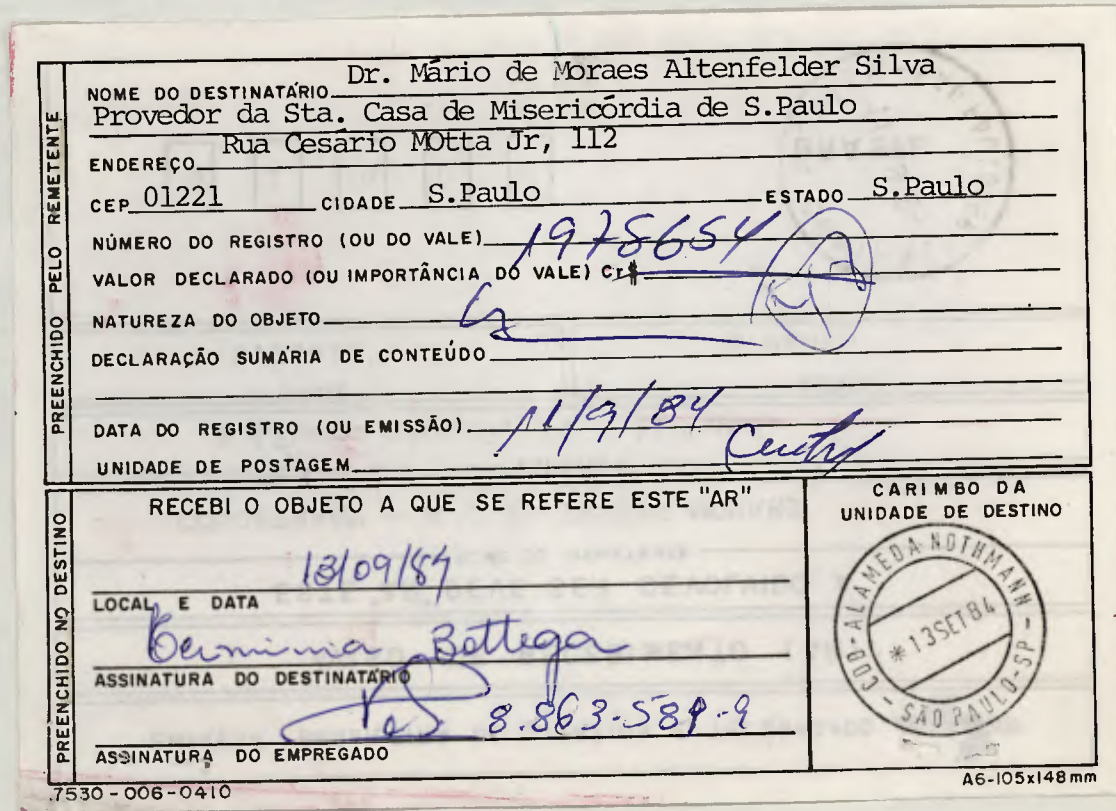 PREENCHIDO PELO REMETENTE
NOME DO DESTINATÁRIO Dr. Mário de Moraes Altenfelder Silva
Provedor da Sta. Casa de Misericórdia de S.Paulo
ENDEREÇO Rua Cesário MOtta Jr, 112
CEP 01221 CIDADE S.Paulo ESTADO S.Paulo
NÚMERO DO REGISTRO (OU DO VALE) 1978654
VALOR DECLARADO (OU IMPORTÂNCIA DO VALE) Cr$
NATUREZA DO OBJETO
DECLARAÇÃO SUMÁRIA DE CONTEÚDO
DATA DO REGISTRO (OU EMISSÃO) 11/9/84
UNIDADE DE POSTAGEM
PREENCHIDO NO DESTINO
RECEBI O OBJETO A QUE SE REFERE ESTE "AR"
13/09/84
LOCAL E DATA
Bettega
ASSINATURA DO DESTINATÁRIO
8.863.589-9
ASSINATURA DO EMPREGADO
CARIMBO DA
UNIDADE DE DESTINO
CDD - ALAMEDA NOTHMANN
* 13SET84
- SÃO PAULO-SP -
7530-006-0410
A6-105x148mm